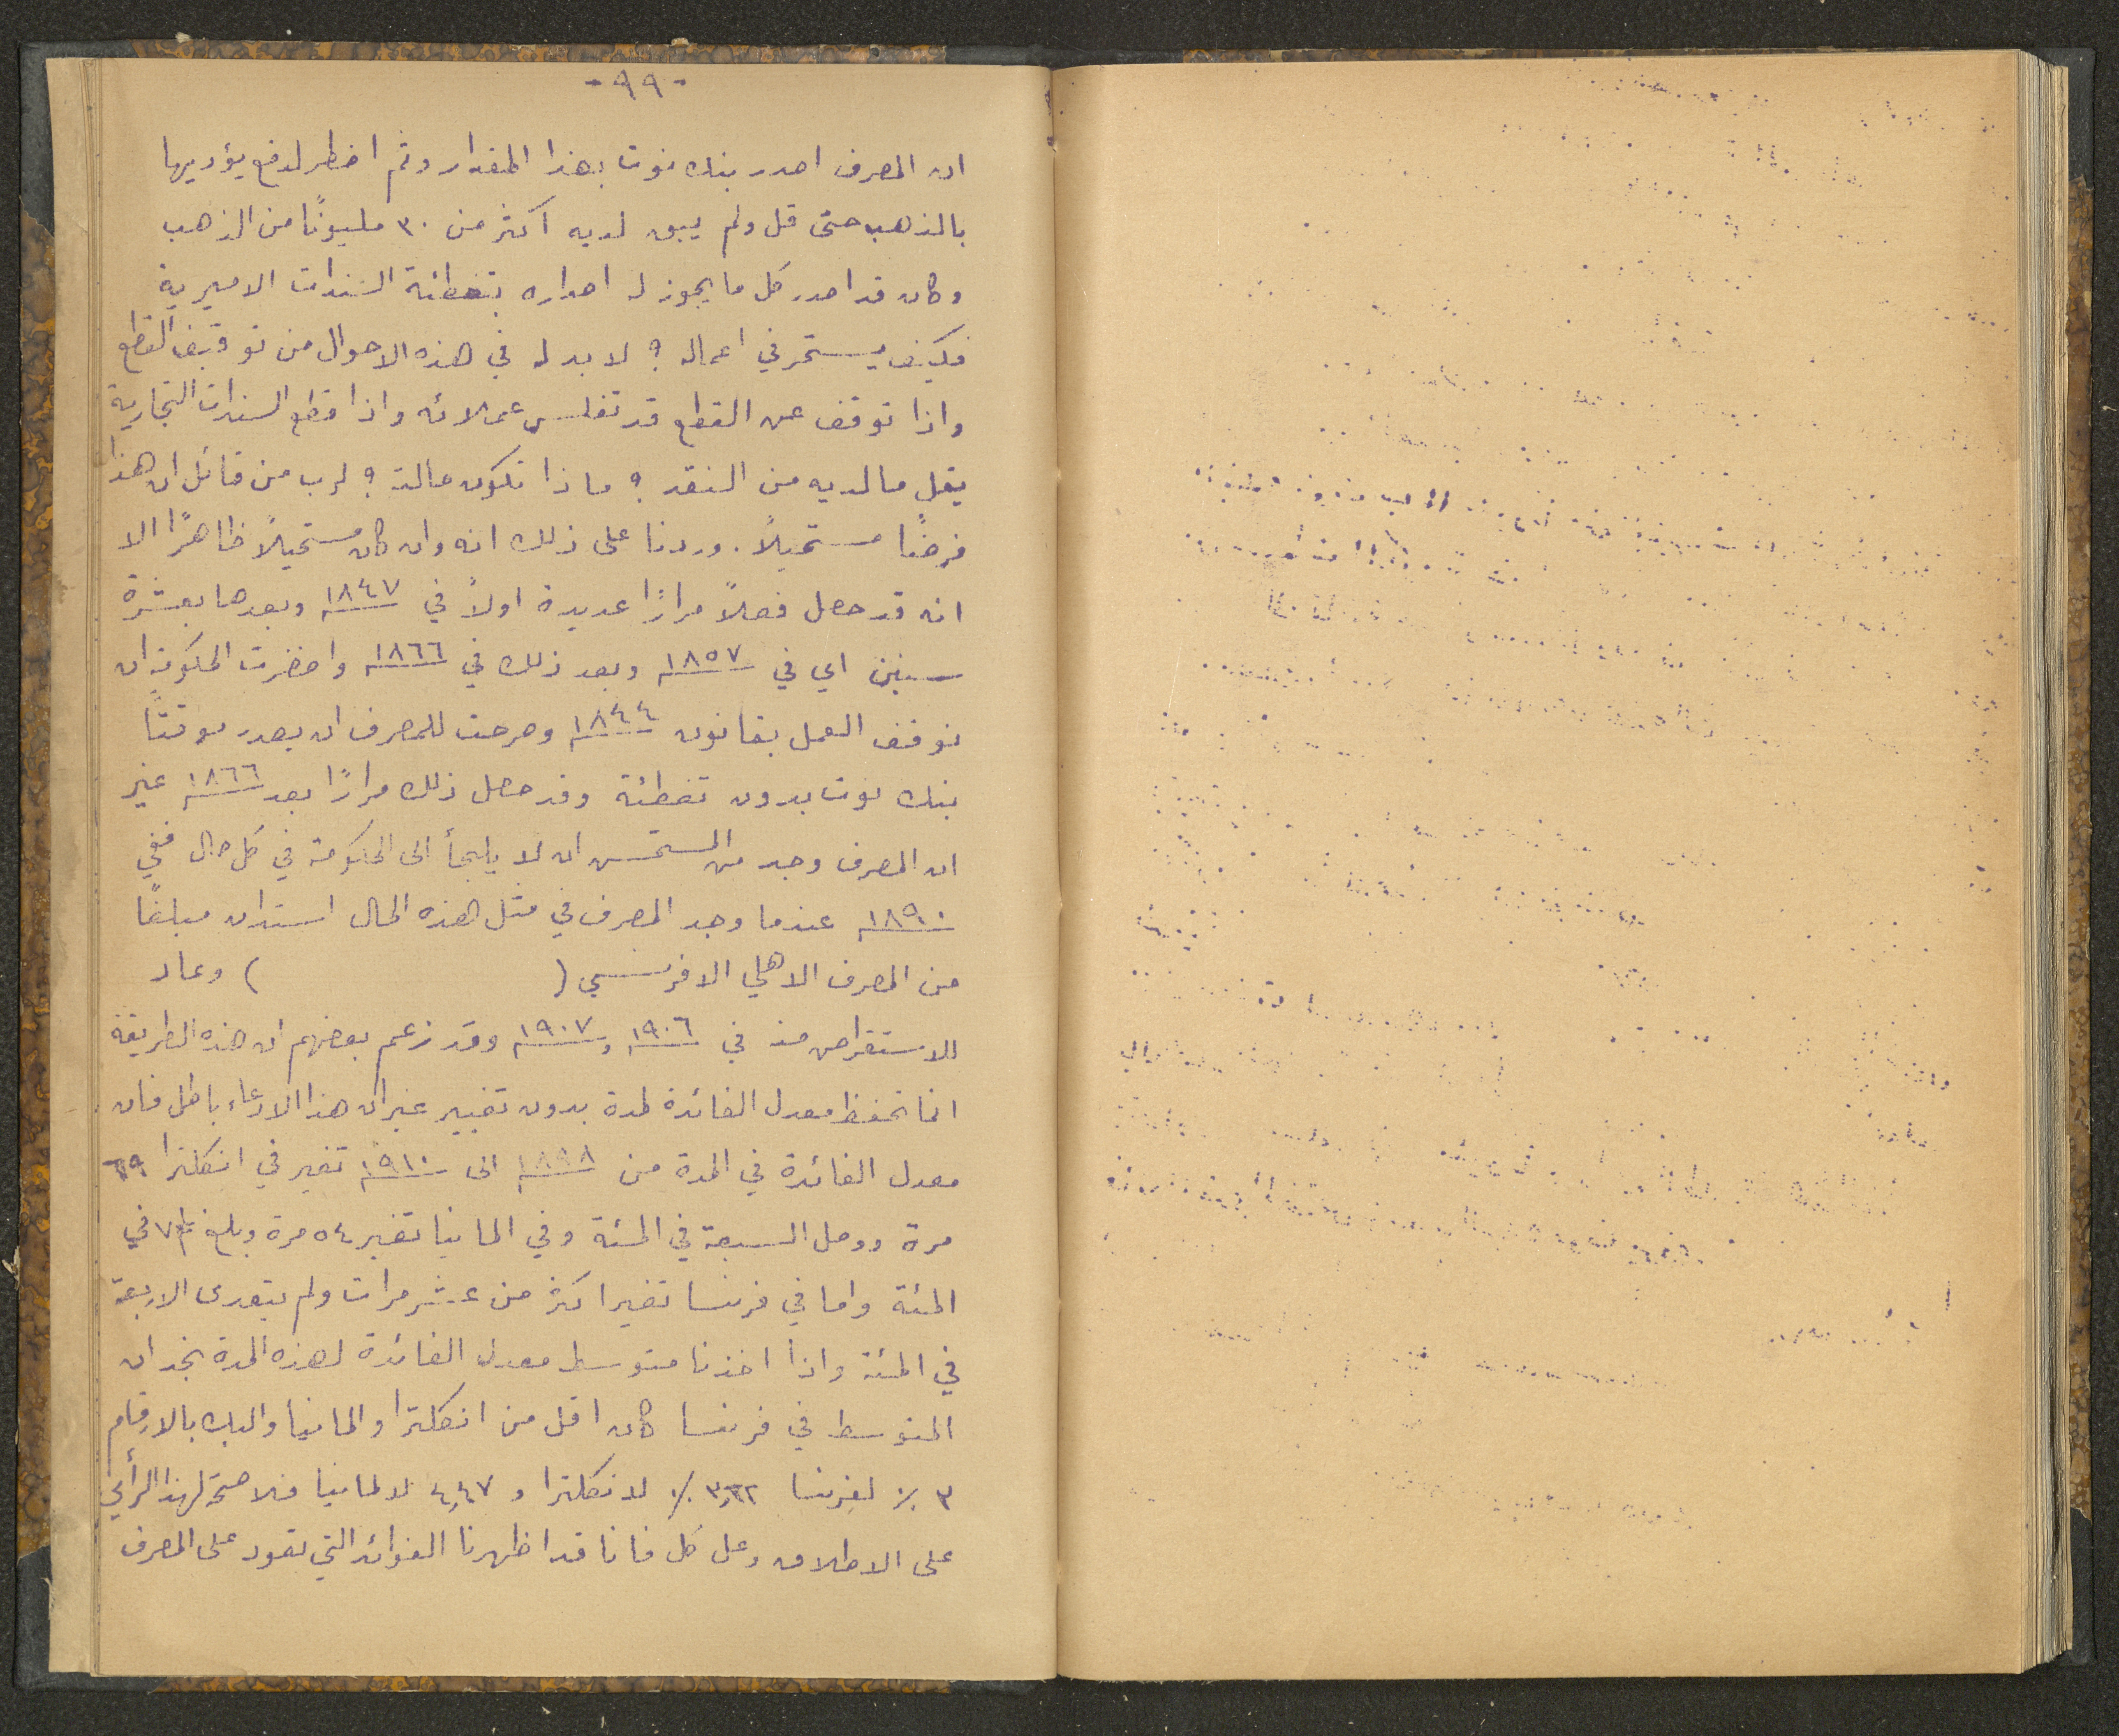 - ٩٩ -
ان المصرف اصدر بنك نوت بهذا المقدار وثم اضطر لدفع يؤديها
بالذهب حتى قل ولم يبق لديه اكثر من ٣٠ مليونًا من الذهب
وكان قد اصدر كل ما يجوز له اصداره بتغطئة السندات الاميرية
فكيف يستمر في اعماله ؟ لا بد له في هذه الاحوال من توقيف القطع
واذا توقف عن القطع قد تفلس عملائه واذا قطع السندات التجارية
يقل ما لديه من النقد ؟ ماذا تكون حالته ؟ لرب من قائل ان هذا
فرضًا مستحيلاً. وردنا على ذلك انه وان كان مستحيلاً ظاهرًا الا
انه قد حصل فعلاً مرارًا عديدة اولاً في ١٨٤٧ وبعدها بعشرة
سنين اي في ١٨٥٧ وبعد ذلك في ١٨٦٦ واضطرت الحكومة ان
توقف العمل بقانون ١٨٤٤ وصرحت للمصرف ان يصدر موقتًا
بنك نوت بدون تغطئة وقد حصل ذلك مرارًا بعد ١٨٦٦ غير
ان المصرف وجد من المستحسن ان لا يلتجأ الى الحكومة في كل حال ففي
١٨٩٠ عندما وجد المصرف في مثل هذه الحال استدان مبلغًا
من المصرف الاهلي الافرنسي ( ) وعاد
للاستقراض منه في ١٩٠٦ و ١٩٠٧ وقد زعم بعضهم ان هذه الطريقة
انما تحفظ معدل الفائدة لمدة بدون تغيير غير ان هذا الادعاء باطل فان
معدل الفائدة في المدة من ١٨٩٨ الى ١٩١٠ تغير في انكلترا ٦٩
مرة ووصل السبعة في المئة وفي المانيا تغير ٥٤ مرة وبلغ ٧ في
المئة واما في فرنسا تغير اكثر من عشر مرات ولم يتعدى الاربعة
في المئة واذا اخذنا متوسط معدل الفائدة لهذه المدة نجد ان
المتوسط في فرنسا كان اقل من انكلترا والمانيا واليك بالارقام
٣ ٪ لفرنسا ٣,٦٢ ٪ لانكلترا و ٤,٤٧ لالمانيا فلا صحة لهذا الرأي
على الاطلاق وعلى كل فانا قد اظهرنا الفوائد التي تعود على المصرف